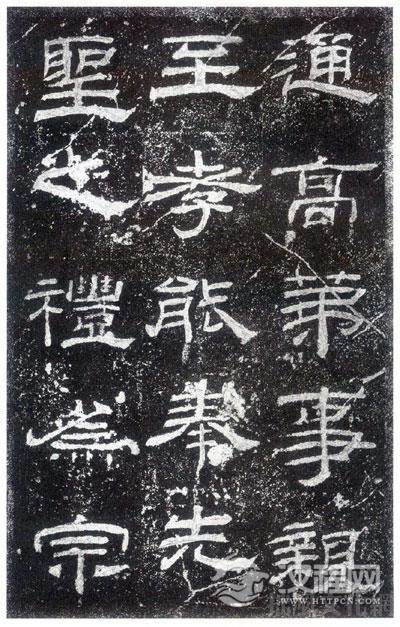 通高第事親
至孝能奉先
聖之禮為宗
汉程网
WWW.HTTPCN.COM